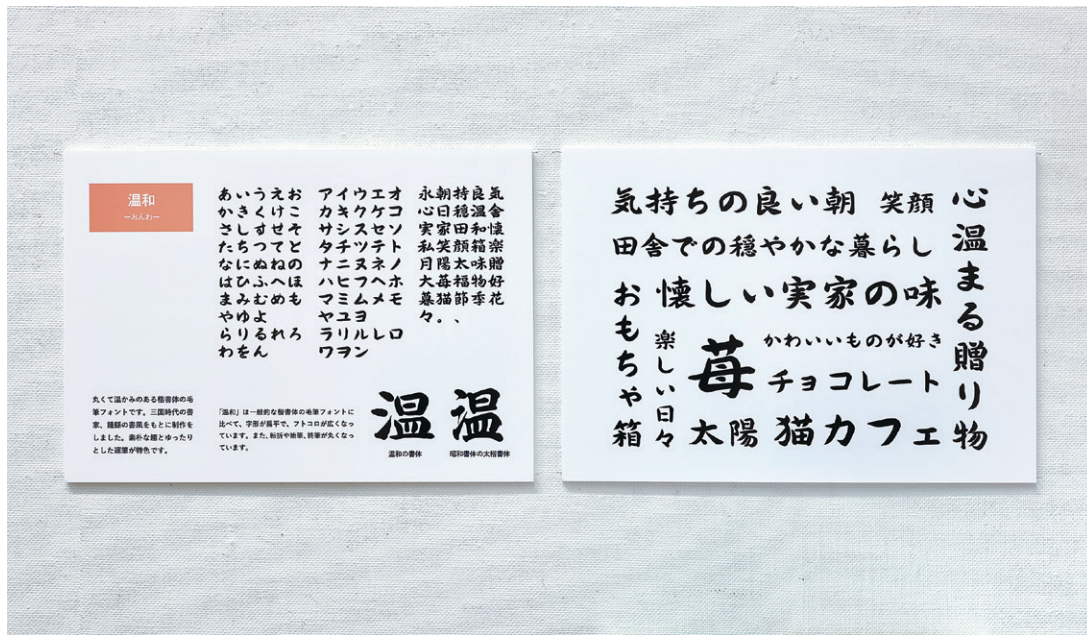 温和
ーおんわー
あいうえお
かきくけこ
さしすせそ
たちつてと
なにぬねの
はひふへほ
まみむめも
やゆよ
らりるれろ
わをん
アイウエオ
カキクケコ
サシスセソ
タチツテト
ナニヌネノ
ハヒフヘホ
マミムメモ
ヤユヨ
ラリルレロ
ワヲン
永朝持良気
心日穏温舎
実家田和懐
私笑顔箱楽
月陽太味贈
大苺福物好
暮猫節季花
々。、
丸くて温かみのある楷書体の毛
筆フォントです。三国時代の書
家、鍾繇の書風をもとに制作を
しました。素朴な趣とゆったり
とした運筆が特色です。
「温和」は一般的な楷書体の毛筆フォントに
比べて、字形が扁平で、フトコロが広くなっ
ています。また、転折や始筆、終筆が丸くなっ
ています。
温
温和の書体
温
昭和書体の太楷書体
気持ちの良い朝
笑顔
心温まる贈り物
田舎での穏やかな暮らし
おもちゃ箱
懐しい実家の味
楽しい日々
苺
かわいいものが好き
チョコレート
太陽
猫カフェ